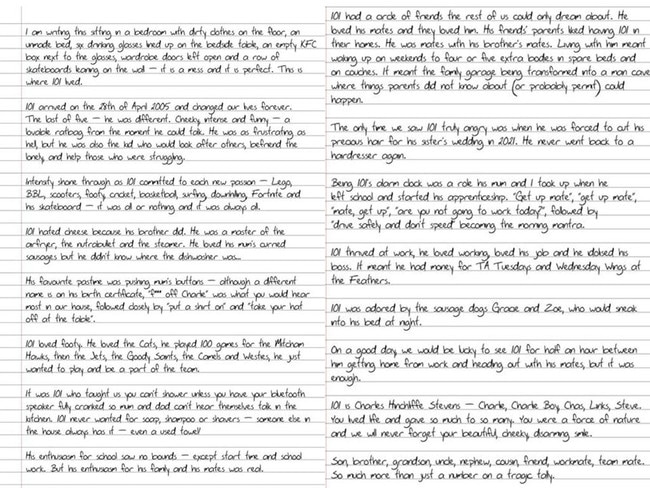 I am writing this sitting in a bedroom with dirty clothes on the floor, an
unmade bed, six drinking glasses lined up on the bedside table, an empty KFC
box next to the glasses, wardrobe doors left open and a row of
skateboards leaning on the wall — it is a mess and it is perfect. This is
where 101 lived.
101 arrived on the 28th of April 2005 and changed our lives forever.
The last of five — he was different. Cheeky, intense and funny — a
lovable ratbag from the moment he could talk. He was as frustrating as
hell, but he was also the kid who would look after others, befriend the
lonely and help those who were struggling.
Intensity shone through as 101 committed to each new passion — Lego,
BBL, scooters, footy, cricket, basketball, surfing, downhilling, Fortnite and
his skateboard — it was all or nothing and it was always all.
101 hated cheese because his brother did. He was a master of the
airfryer, the nutribullet and the steamer. He loved his mum's curried
sausages but he didn't know where the dishwasher was...
His favourite pastime was pushing mum's buttons — although a different
name is on his birth certificate, "f*** off Charlie" was what you would hear
most in our house, followed closely by "put a shirt on" and "take your hat
off at the table".
101 loved footy. He loved the Cats, he played 100 games for the Mitcham
Hawks, then the Jets, the Goody Saints, the Camels and Westies, he just
wanted to play and be a part of the team.
It was 101 who taught us you can't shower unless you have your bluetooth
speaker fully cranked so mum and dad can't hear themselves talk in the
kitchen. 101 never wanted for soap, shampoo or shavers — someone else in
the house always has it — even a used towel!
His enthusiasm for school saw no bounds — except start time and school
work. But his enthusiasm for his family and his mates was real.
101 had a circle of friends the rest of us could only dream about. He
loved his mates and they loved him. His friends' parents liked having 101 in
their homes. He was mates with his brother's mates. Living with him meant
waking up on weekends to four or five extra bodies in spare beds and
on couches. It meant the family garage being transformed into a man cave
where things parents did not know about (or probably permit) could
happen.
The only time we saw 101 truly angry was when he was forced to cut his
precious hair for his sister's wedding in 2021. He never went back to a
hairdresser again.
Being 101's alarm clock was a role his mum and I took up when he
left school and started his apprenticeship. "Get up mate", "get up mate",
"mate, get up", "are you not going to work today?", followed by
"drive safely and don't speed" becoming the morning mantra.
101 thrived at work, he loved working, loved his job and he idolised his
boss. It meant he had money for TA Tuesdays and Wednesday Wings at
the Feathers.
101 was adored by the sausage dogs Gracie and Zoe, who would sneak
into his bed at night.
On a good day, we would be lucky to see 101 for half an hour between
him getting home from work and heading out with his mates, but it was
enough.
101 is Charles Hinchliffe Stevens — Charlie, Charlie Boy, Chas, Links, Steve.
You lived life and gave so much to so many. You were a force of nature
and we will never forget your beautiful, cheeky, disarming smile.
Son, brother, grandson, uncle, nephew, cousin, friend, workmate, team mate.
So much more than just a number on a tragic tally.